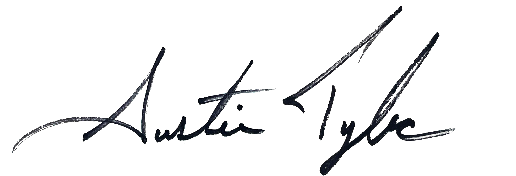 Austin Tyler